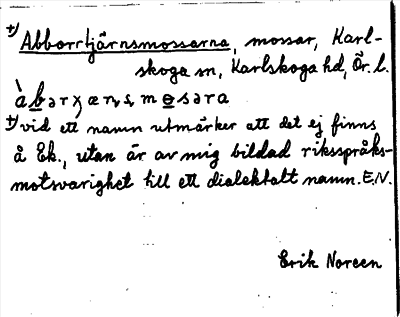 +) Abborrtjärnsmossarna, mossar, Karl-
skoga sn, Karlskoga hd, Ör. l.
+) vid ett namn utmärker att det ej finns
å Ek., utan är av mig bildad riksspråks-
motsvarighet till ett dialektalt namn. E.N.
Erik Noreen